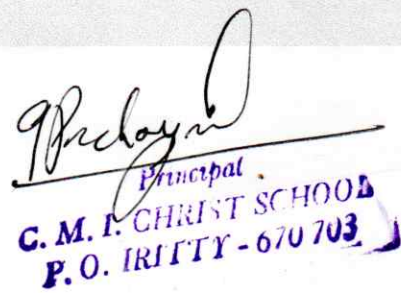 Principal
C. M. I. CHRIST SCHOOL
P. O. IRITTY - 670 703